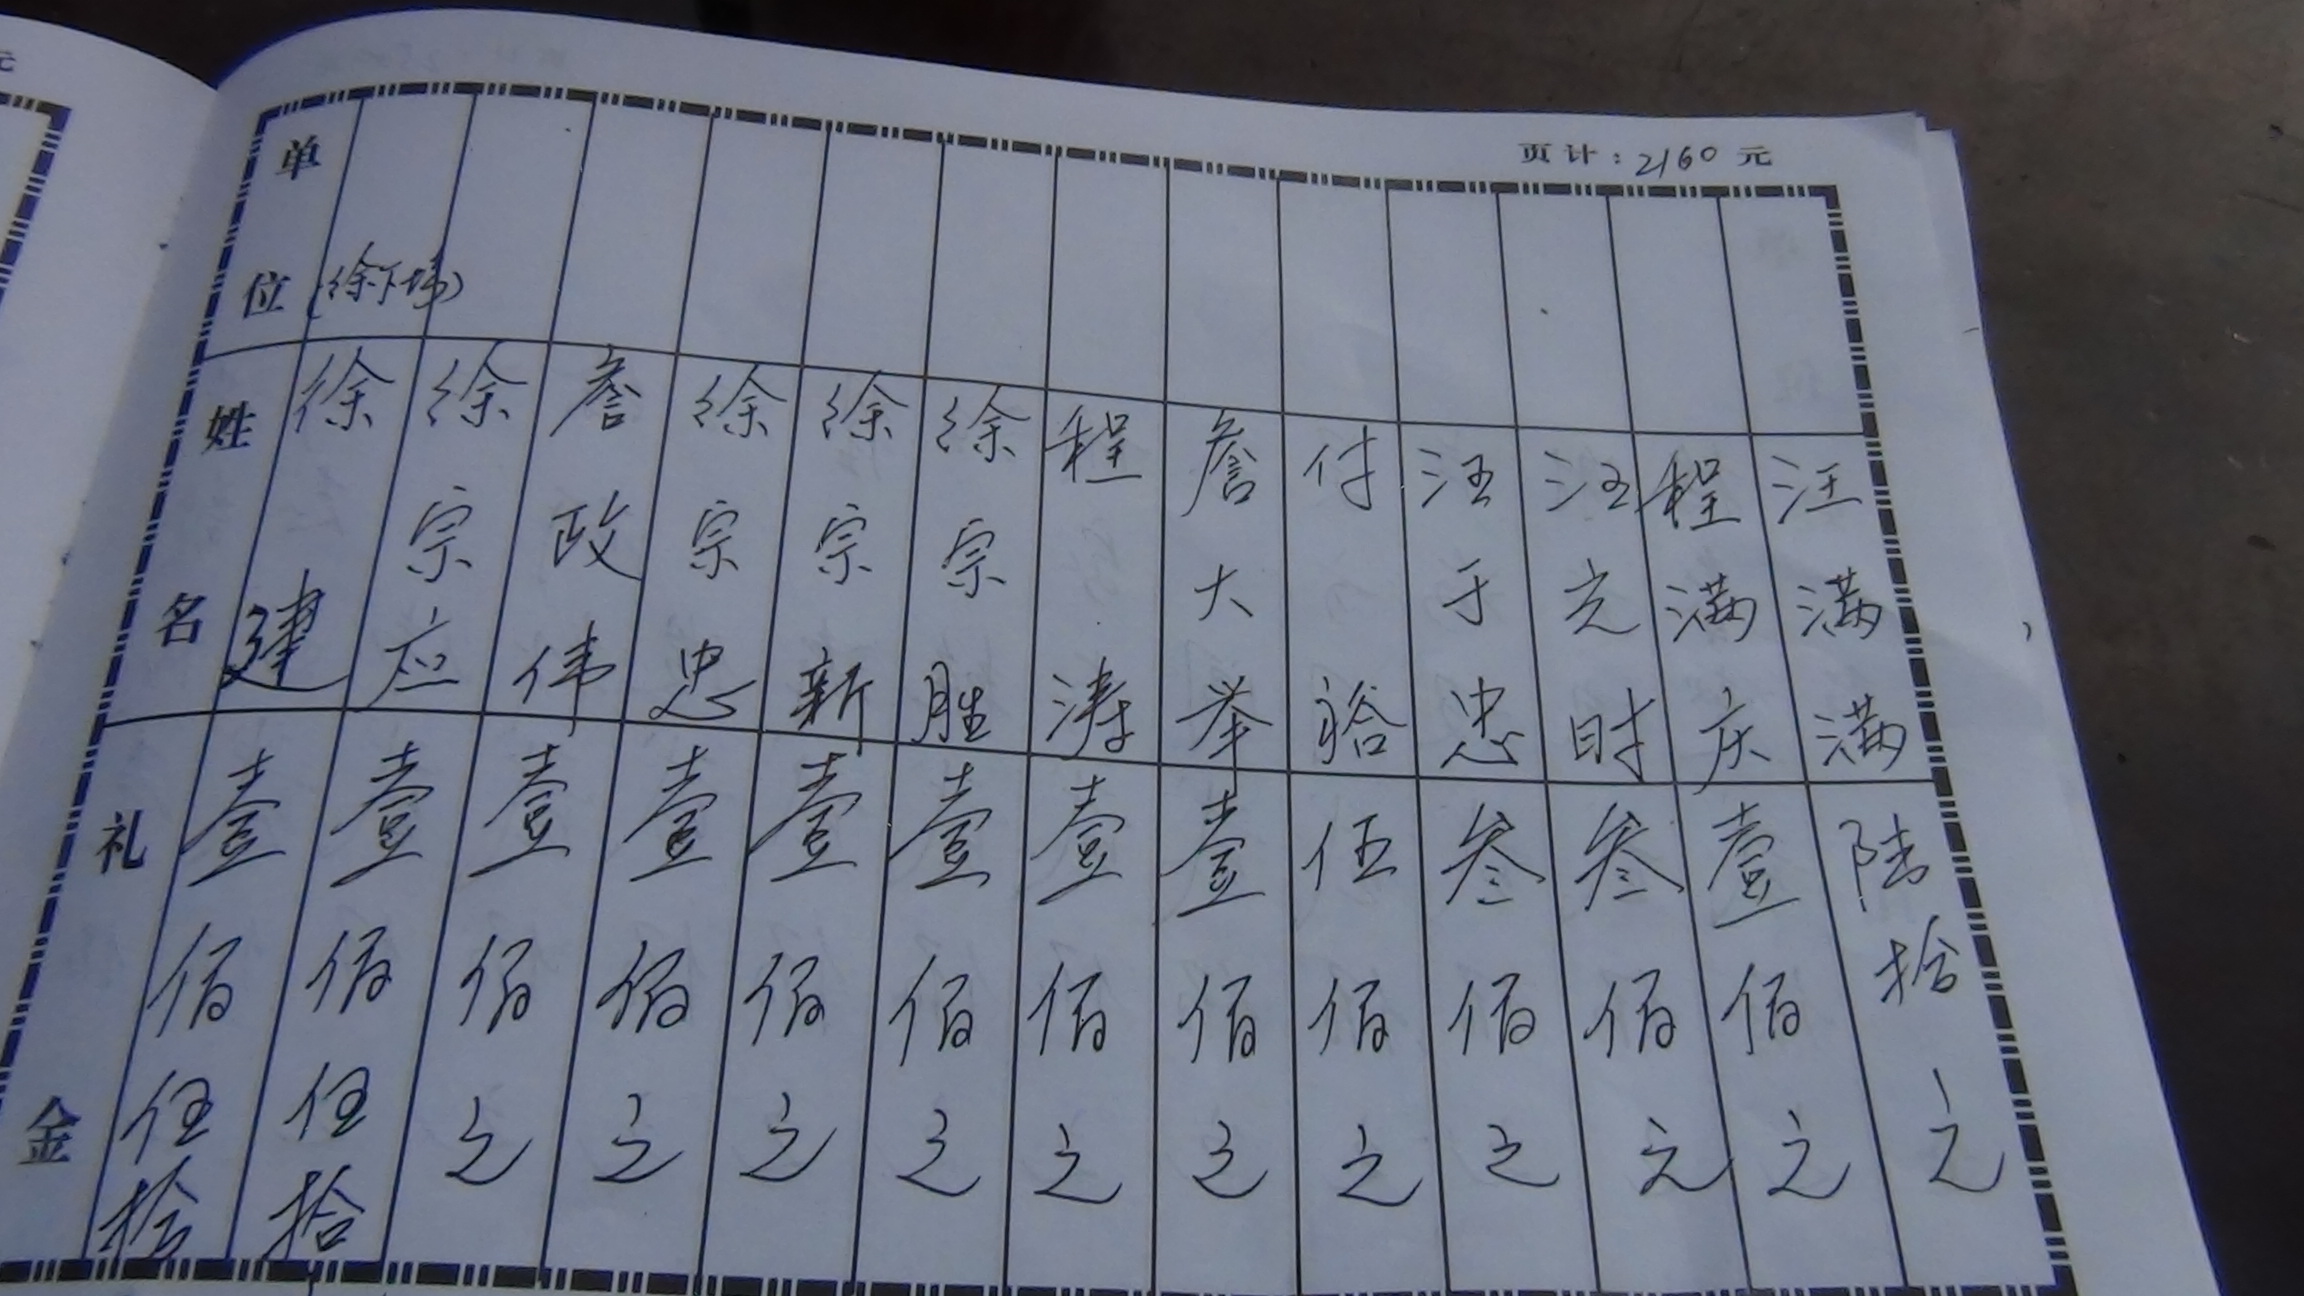 元
页计：2160元
单位
(徐下
姓名
徐建
徐宗应
詹政伟
徐宗忠
徐宗新
徐宗胜
程涛
詹大举
付裕
汪于忠
汪光时
程满庆
汪满满
礼金
壹佰伍拾
壹佰伍拾
壹佰元
壹佰元
壹佰元
壹佰元
壹佰元
壹佰元
伍佰元
叁佰元
叁佰元
壹佰元
陆拾元